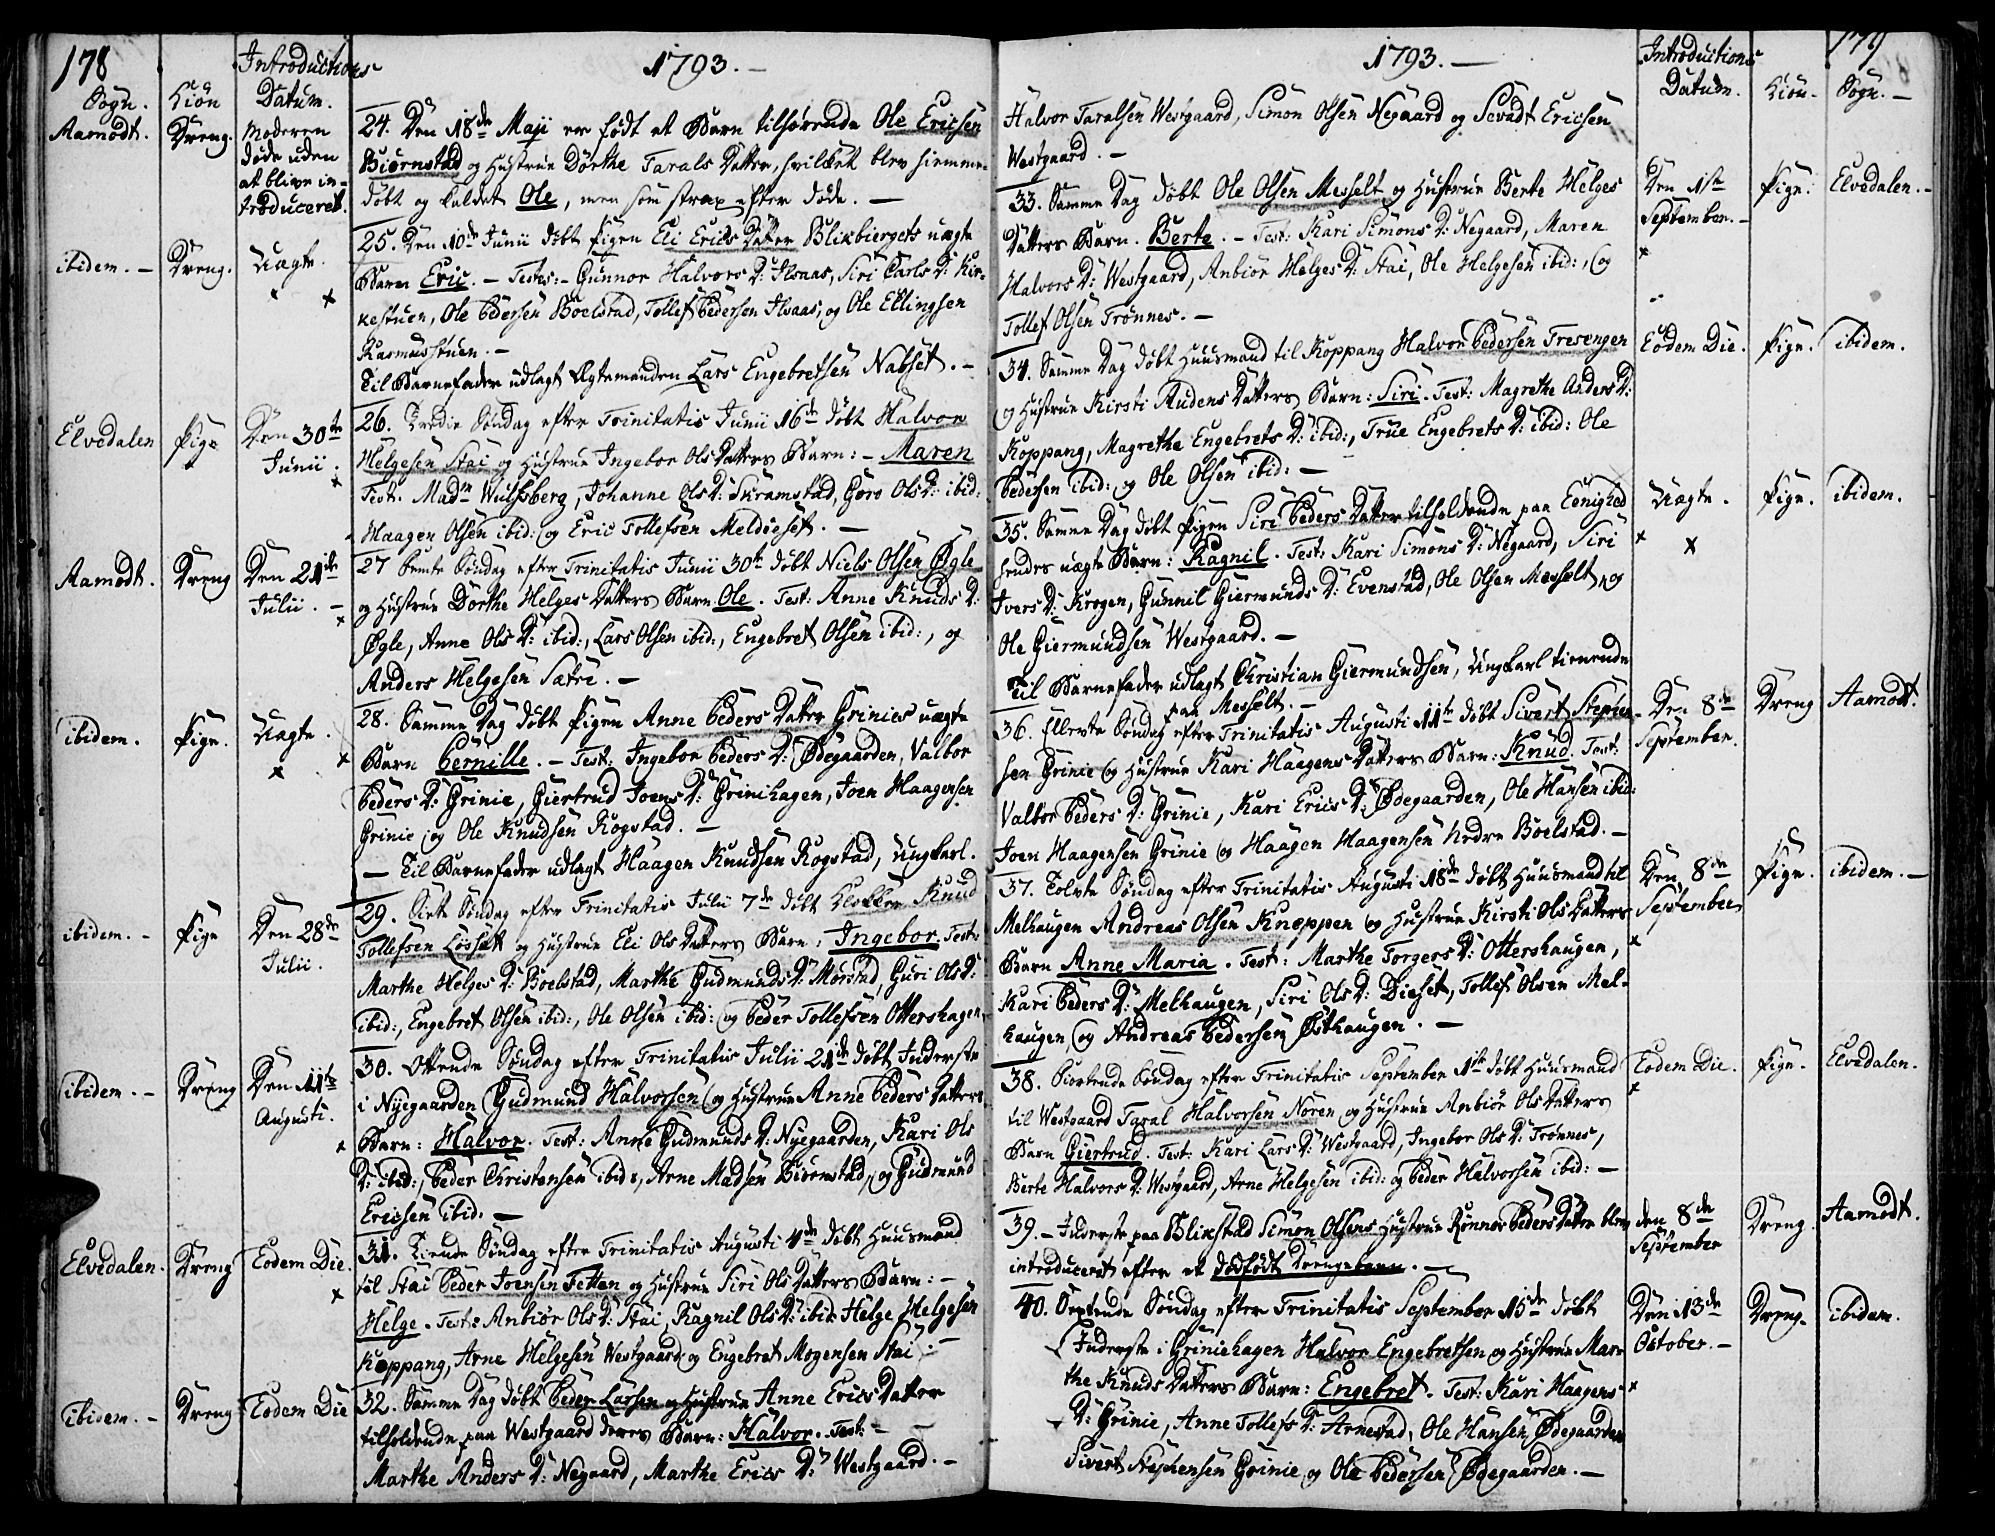 178
Introductions
1793. —
Sogn. Kiön Datum.
Aamodt. Dreng. Moderen döde uden at blive introduceret.
24. Den 18de Maji er födt et Barn tilhörende Ole Ericsen
Biörnstad og Hustrue Dörthe Tarals Datter, hvilket blev hiemme-
döbt og kaldet Ole, men som strax efter döde. —
ibidem. — Dreng. Uægte.
25. Den 10de Junii döbt Pigen Eli Erics Datter Blikbergets uægte
Barn Eric. — Testes: — Gunnor Halvors D: Ilsaas, Siri Carls D: Kir-
kestuen, Ole Pedersen Boelstad, Tollef Pedersen Ilsaas, og Ole Ellingsen
Rasmusstuen. —
Til Barnefader udlagt Ægtemanden Lars Engebretsen Nabset. —
Elvedalen Pige Den 30te Junii.
26. Tredie Söndag efter Trinitatis Junii 16de döbt Halvor
Helgesen Stai og Hustrue Ingebor Ols Datters Barn: — Maren
Test: Madm Wulfsberg, Johanne Ols D: Skramstad, Goro Ols D: ibid:
Haagen Olsen ibid: og Eric Tollefsen Meldieset. —
Aamodt. Dreng Den 21de Julii. —
27 Femte Söndag efter Trinitatis Junii 30te döbt Niels Olsen Ögle
og Hustrue Dorthe Helges Datters Barn Ole. Test: Anne Knuds D:
Ögle, Anne Ols D: ibid:, Lars Olsen ibid:, Engebret Olsen ibid:, og
Anders Helgesen Sætre. —
ibidem. Pige. Uægte.
28. Samme Dag döbt Pigen Anne Peders Datter Grinies uægte
Barn Pernille. — Test: Ingebor Peders D: Ödegaarden, Valbor
Peders D: Grinie, Giertrud Joens D: Grinihagen, Joen Haagensen
Grinie og Ole Knudsen Rogstad. —
— Til Barnefader udlagt Haagen Knudsen Rogstad, Ungkarl.
ibidem. — Pige Den 28de Julii.
29. Siette Söndag efter Trinitatis Julii 7de döbt Klokker Knud
Tollefsen Losset og Hustrue Eli Ols Datters Barn: Ingebor. Test:
Marthe Helges D: Boelstad, Marthe Gudmunds D: Morstad, Guri Ols D:
ibid:, Engebret Olsen ibid:, Ole Olsen ibid: og Peder Tollefsen Ottershagen.
ibidem. — Dreng Den 11te Augusti.
30. Ottende Söndag efter Trinitatis Julii 21de döbt Inderste
i Nyegaarden Gudmund Halvorsen og Hustrue Anne Peders Datters
Barn: Halvor. Test: Anne Gudmunds D: Nyegaarden, Kari Ols
D: ibid:, Peder Christensen ibid:, Arne Madsen Biörnstad, og Gudmund
Ericsen ibid: —
Elvedalen. Dreng Eodem Die.
31. Tiende Söndag efter Trinitatis Augusti 4de döbt Huusmand
til Stai Peder Joensen Tettan og Hustrue Siri Ols Datters Barn: —
Helge. Test: Anbiör Ols D: Stai, Ragnil Ols D: ibid: Helge Helgesen
Koppang, Arne Helgesen Westgaard og Engebret Mogensen Stai. —
ibidem. — Dreng Eodem Die
32. Samme Dag döbt Peder Larsen og Hustrue Anne Erics Datter
tilholdende paa Westgaard deres Barn: Halvor. Test: —
Marthe Anders D: Negaard, Marthe Erics D: Westgaard. —
1793. —
Introductions Datum. Kiön. Sogn. —
179
Halvor Taralsen Westgaard, Simon Olsen Negaard og Sevadt Ericsen
Westgaard. —
33. Samme Dag döbt Ole Olsen Messelt og Hustrue Berte Helges
Datters Barn. Berte. — Test: Kari Simons D: Negaard, Maren
Halvors D: Westgaard, Anbiör Helges D: Stai, Ole Helgesen ibid:, og
Tollef Olsen Trönnes. —
Den 1ste September. — Pige. Elvedalen. —
34. Samme Dag döbt Huusmand til Koppang Halvor Pedersen Tresengen
og Hustrue Kirsti Audens Datters Barn: Siri. Test: Magrethe Anders D:
Koppang, Magrethe Engebrets D: ibid:, True Engebrets D: ibid: Ole
Pedersen ibid: og Ole Olsen ibid: —
Eodem Die. Pige. ibidem.
35. Samme Dag döbt Pigen Siri Peders Datter tilholdende paa Eenighed
hendes uægte Barn: Ragnil. Test: Kari Simons D: Negaard, Siri
Ivers D: Krogen, Gunnil Giermunds D: Evenstad, Ole Olsen Messelt, og
Ole Giermundsen Westgaard. —
Til Barnefader udlagt Christian Giermundsen, Ungkarl tienende
paa Messelt. —
Uægte. Pige. ibidem.
36. Ellevte Söndag efter Trinitatis Augusti 11te döbt Sivert Stephen-
sen Grinie og Hustrue Kari Haagens Datters Barn: Knud. Test:
Valbor Peders D: Grinie, Kari Erics D: Ödegaarden, Ole Hansen ibid:
Joen Haagensen Grinie og Haagen Haagensen Nedre Boelstad. —
Den 8de September. Dreng Aamodt.
37. Tolvte Söndag efter Trinitatis Augusti 18de döbt Huusmand til
Melhaugen Andreas Olsen Knæppen og Hustrue Kirsti Ols Datters
Barn Anne Maria. Test: Marthe Torgers D: Ottershaugen,
Kari Peders D: Melhaugen, Siri Ols D: Dieset, Tollef Olsen Mel-
haugen og Andreas Pedersen Östhaugen. —
Den 8de September Pige. ibidem. —
38. Fiortende Söndag efter Trinitatis September 1ste döbt Huusmand
til Westgaard Taral Halvorsen Noren og Hustrue Anbiör Ols Datters
Barn Giertrud. Test: Kari Lars D: Westgaard, Ingebor Ols D: Trönnes,
Berte Halvors D: Westgaard, Arne Helgesen ibid: og Peder Halvorsen ibid: —
Eodem Die. Pige. Elvedalen.
39. — Inderste paa Blikstad Simon Olsens Hustrue Ronnor Peders Datter blev
introduceret efter et dödfödt Drengebarn. —
den 8de September Dreng. Aamodt.
40. Sextende Söndag efter Trinitatis September 15de döbt
Inderste i Griniehagen Halvor Engebretsen og Hustrue Mar-
the Knuds Datters Barn: Engebret. Test: Kari Haagens
D: Grinie, Anne Tollefs D: Arnestad, Ole Hansen Ödegaarden
Sivert Stephensen Grinie og Ole Pedersen Ödegaarden. —
Den 13de October. — Dreng. ibidem.